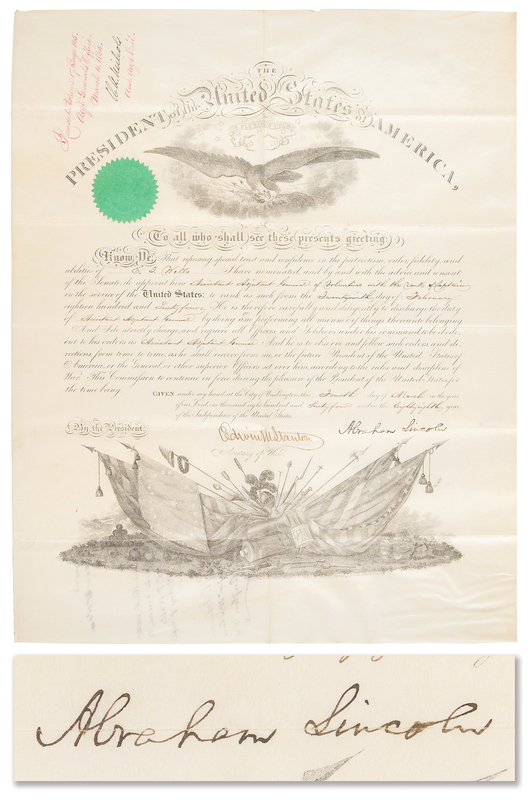 THE
PRESIDENT of the United States of AMERICA,
To all who shall see these presents greeting:
Know Ye, That reposing special trust and confidence in the patriotism, valor, fidelity, and
abilities of I have nominated and by and with the advice and consent
of the Senate, do appoint him Assistant Adjutant General of Volunteers with the rank of Captain
in the service of the United States: to rank as such from the day of February
eighteen hundred and Sixty four. He is therefore carefully and diligently to discharge the duty
of Assistant Adjutant General by doing and performing all manner of things thereunto belonging.
And I do strictly charge, and require all Officers and Soldiers under his command to be obedi-
ent to his orders as Assistant Adjutant General And he is to observe and follow such orders, and di-
rections from time to time, as he shall receive from me, or the future President of the United States of
America, or the General or other superior Officers set over him, according to the rules and discipline of
War. This Commission to continue in force during the pleasure of the President of the United States, for
the time being.
GIVEN under my hand, at the City of Washington, this Fourth day of March in the year
of our Lord, one thousand eight hundred and Sixty four and in the Eighty eighth year
of the Independence of the United States.
By the President
Edwin M Stanton
Abraham Lincoln
Secretary of War
Abraham Lincoln